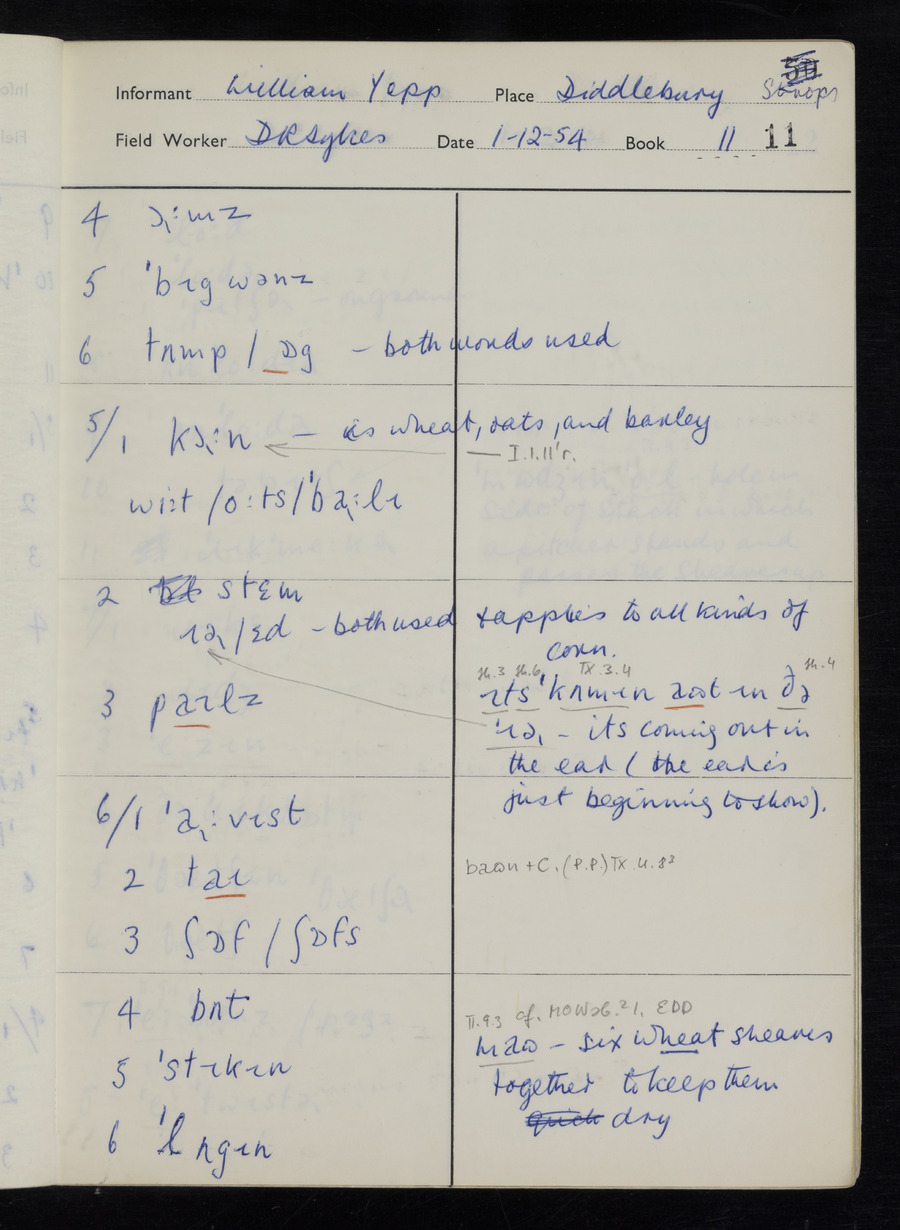 Informant William Yapp Place Diddlebury Salops
Field Worker DRSykes Date 1-12-54 Book 11 11
4 ɔ˞:mz
5 'bɪgwənz
6 tʌmp / ɒg – both words used
5/1 kɔ˞:n – is wheat, oats, and barley
— I.1.11'r.
wi:t / o:ts / 'ba˞:lɪ
2 stɛm
ɪə˞ / ɛd – both used
+applies to all kinds of
corn.
3 paɪlz
ɪts 'kʌmɪn aʊt ɪn ðə
'ɪə˞ – its coming out in
the ear (the ear is
just beginning to show).
6/1 'a˞:vɪst
2 taɪ
3 ʃɒf / ʃɒfs
4 bʌt
5 'stɪkɪn
6 'lʌgɪn
II.9.3 cf. MOW 26.21. EDD
– six wheat sheaves
together to keep them
dry